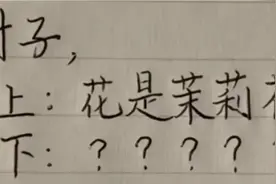 子，
上：花是茉莉
下：？？？？